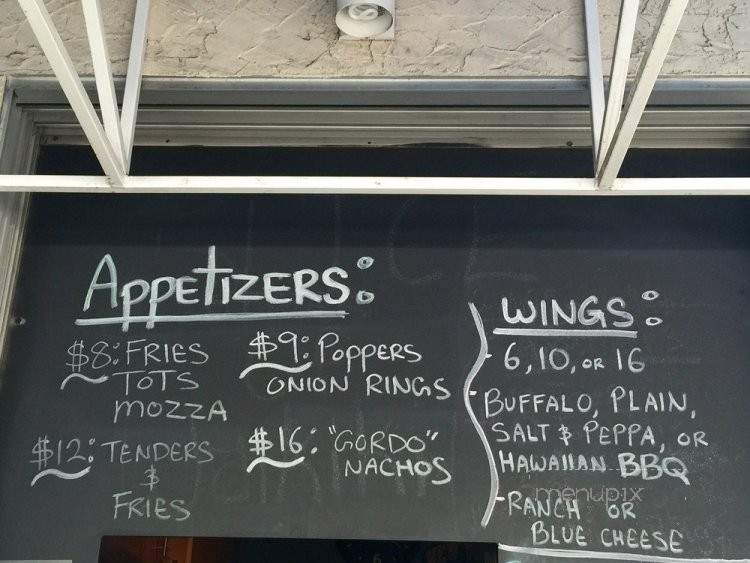 APPETIZERS:
$8: FRIES
TOTS
MOZZA
$9: POPPERS
ONION RINGS
$12: TENDERS
&
FRIES
$16: "GORDO"
NACHOS
WINGS:
- 6, 10, OR 16
- BUFFALO, PLAIN,
SALT & PEPPA, OR
HAWAIIAN BBQ
- RANCH OR
BLUE CHEESE
menupix